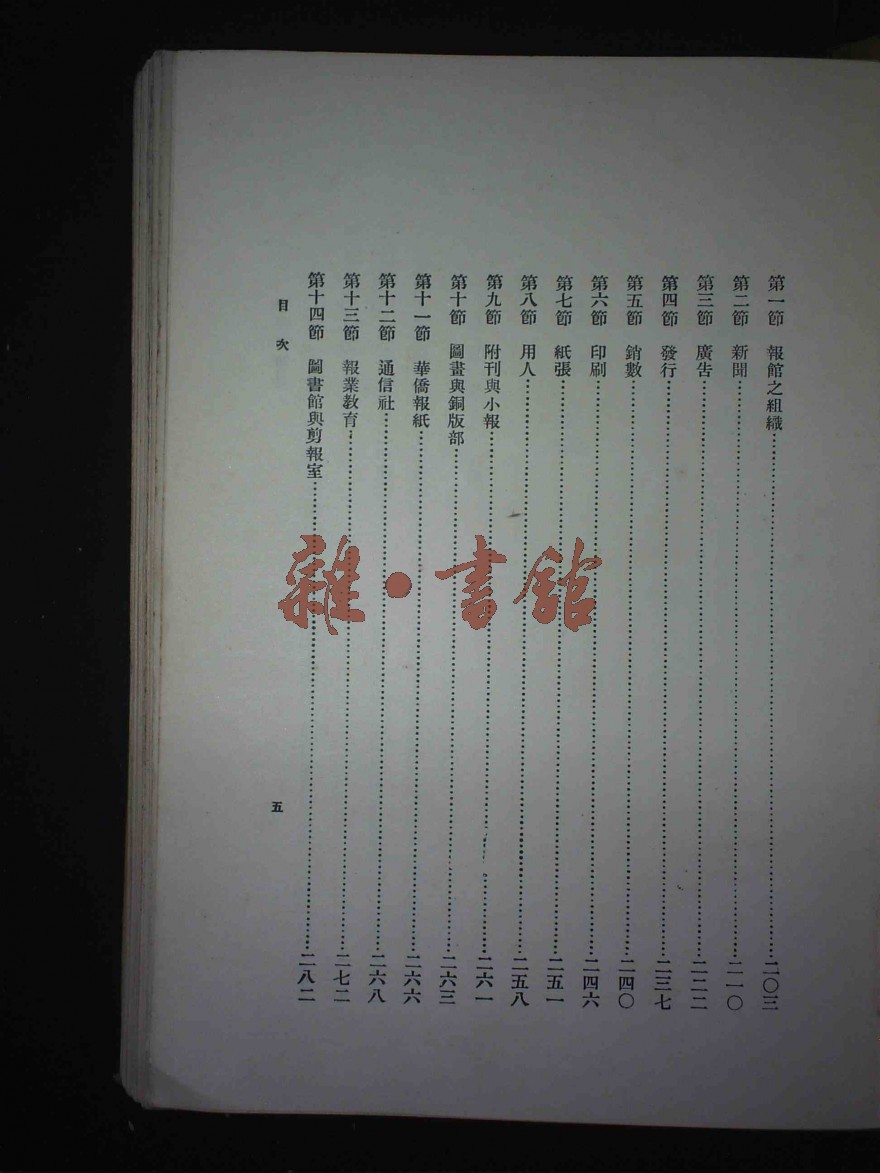 第一節　報館之組織……二〇三
第二節　新聞……二一〇
第三節　廣告……二二二
第四節　發行……二三七
第五節　銷數……二四〇
第六節　印刷……二四六
第七節　紙張……二五一
第八節　用人……二五八
第九節　附刊與小報……二六一
第十節　圖畫與銅版部……二六三
第十一節　華僑報紙……二六六
第十二節　通信社……二六八
第十三節　報業教育……二七二
第十四節　圖書館與剪報室……二八二
目次
五
雜·書館